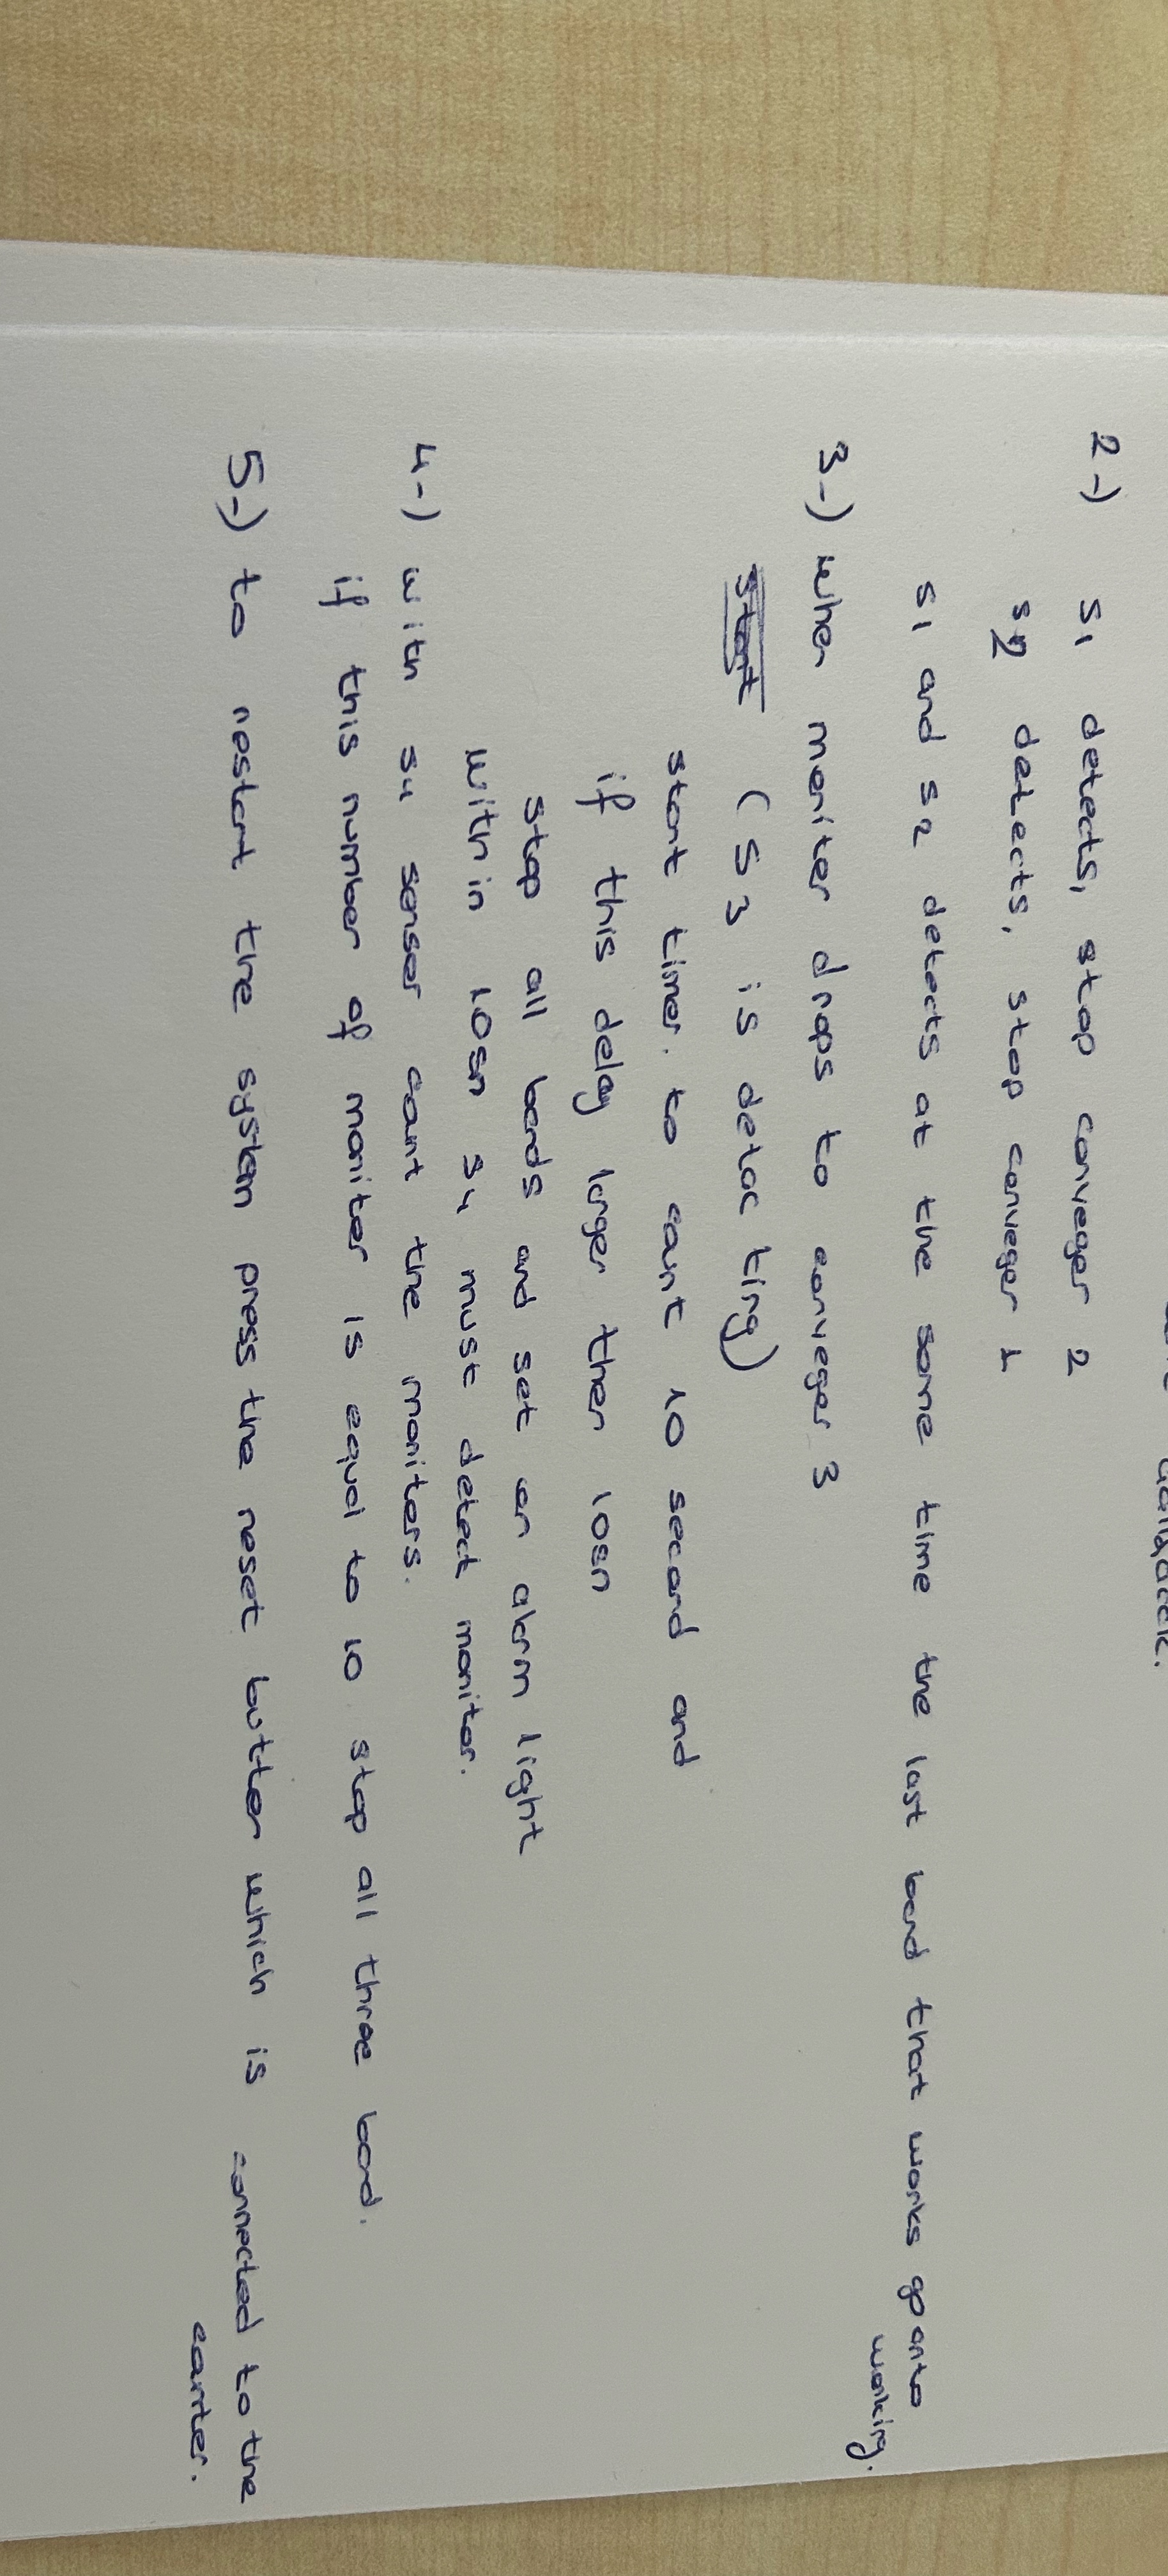 2-) S1 detects, stop conveger 2
S2 detects, stop conveger 1
S1 and S2 detects at the same time the last band that works go onto
working.
3-) when moniter drops to conveger 3
start (S3 is detec ting)
start timer to count 10 second and
if this delay larger then 10sn
stop all bands and set an alarm light
within 10sn S4 must detect monitor.
4-) with S4 sensor count the moniters.
if this number of moniter is equal to 10 stop all three band.
5-) to restart the system press the reset button which is connected to the
counter.